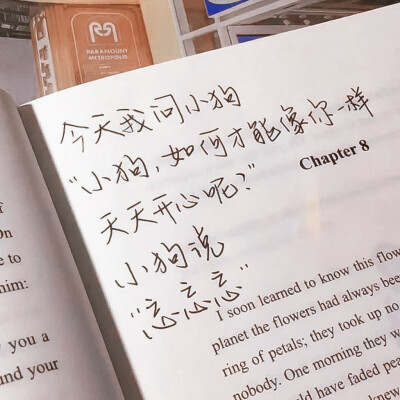 PARAMOUNT
METROPOLITAN
今天我问小狗
“小狗，如何才能像你一样
天天开心呢？”
小狗说
“忘忘忘”
Chapter 8
I soon learned to know this flow
planet the flowers had always bee
ring of petals; they took up no
nobody. One morning they w
ld have faded pea
knew
On
e to
him:
you a
und your